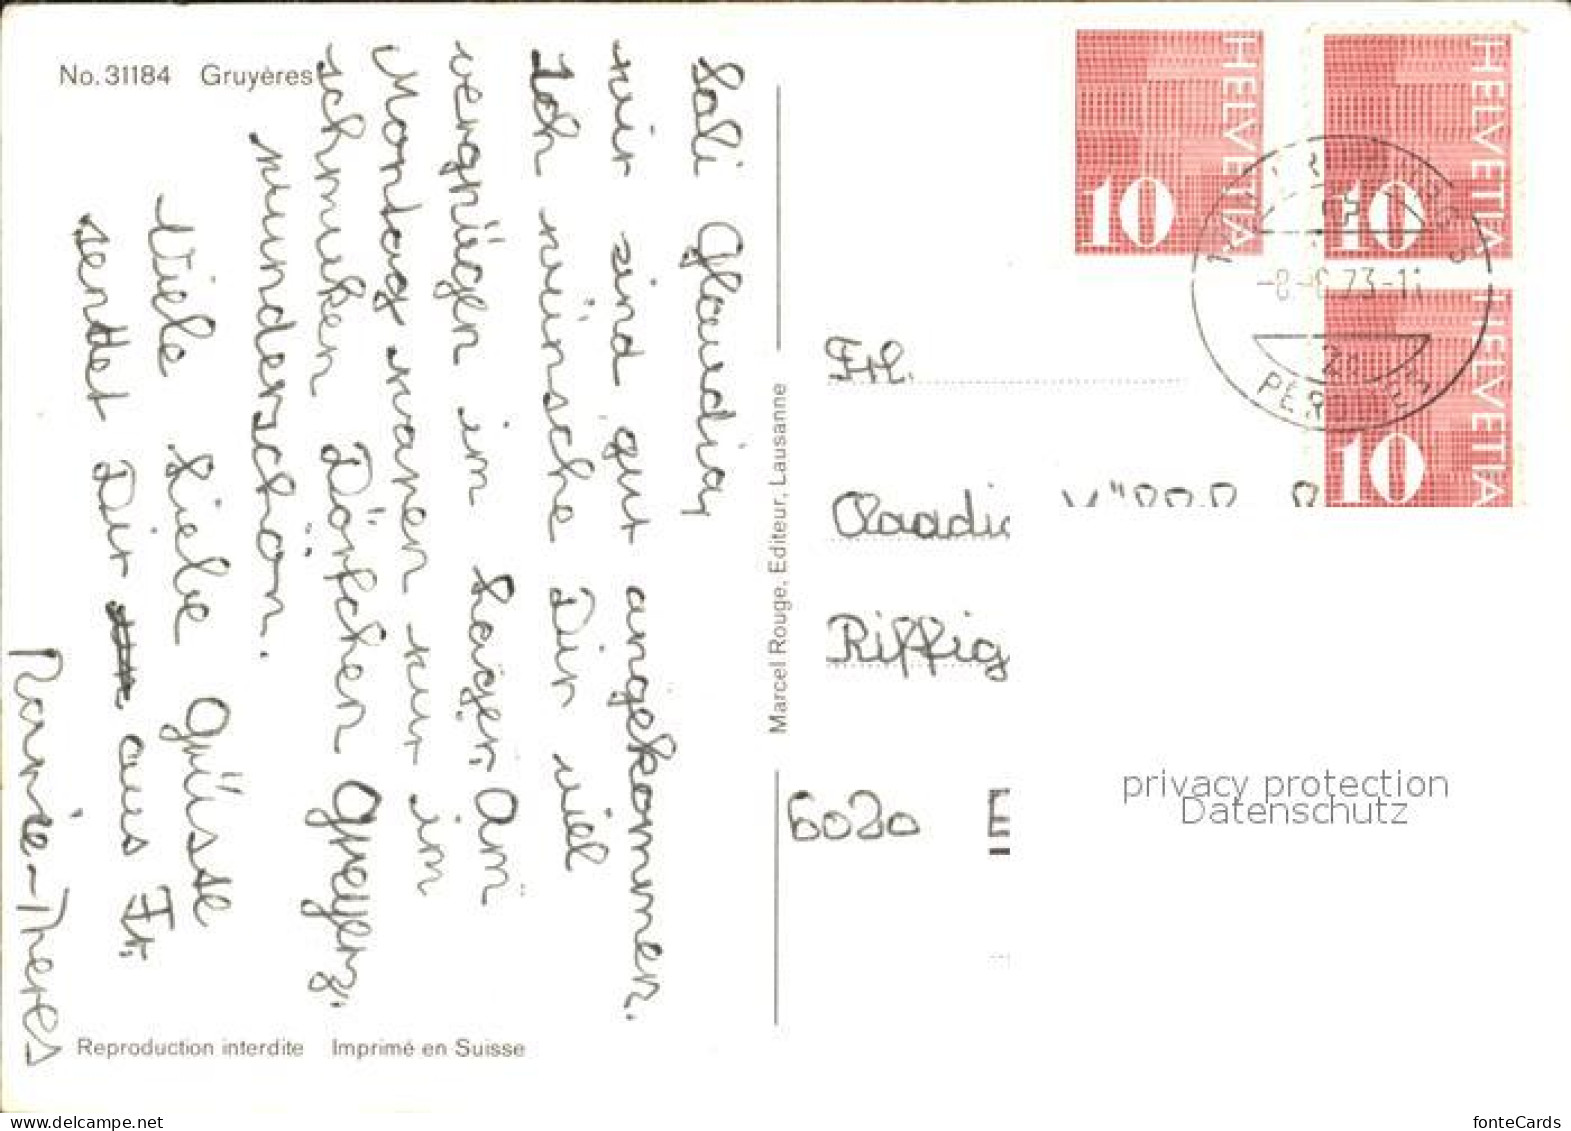 No. 31184 Gruyères
Sali Glaudia,
wir sind gut angekommen.
Ich wünsche Dir viel
vergnügen im Lager. Am
Montag waren wir im
schmuken Dörfchen Greyerz.
wunderschön.
Viele Liebe Grüsse
sendet Dir aus Fr.
Marie-Theres
Reproduction interdite Imprimé en Suisse
Marcel Rouge, Editeur, Lausanne
HELVETIA 10
HELVETIA 10
HELVETIA 10
73
Frl.
Claadia
Riffig
6020 E
privacy protection
Datenschutz
delcampe.net
fonteCards